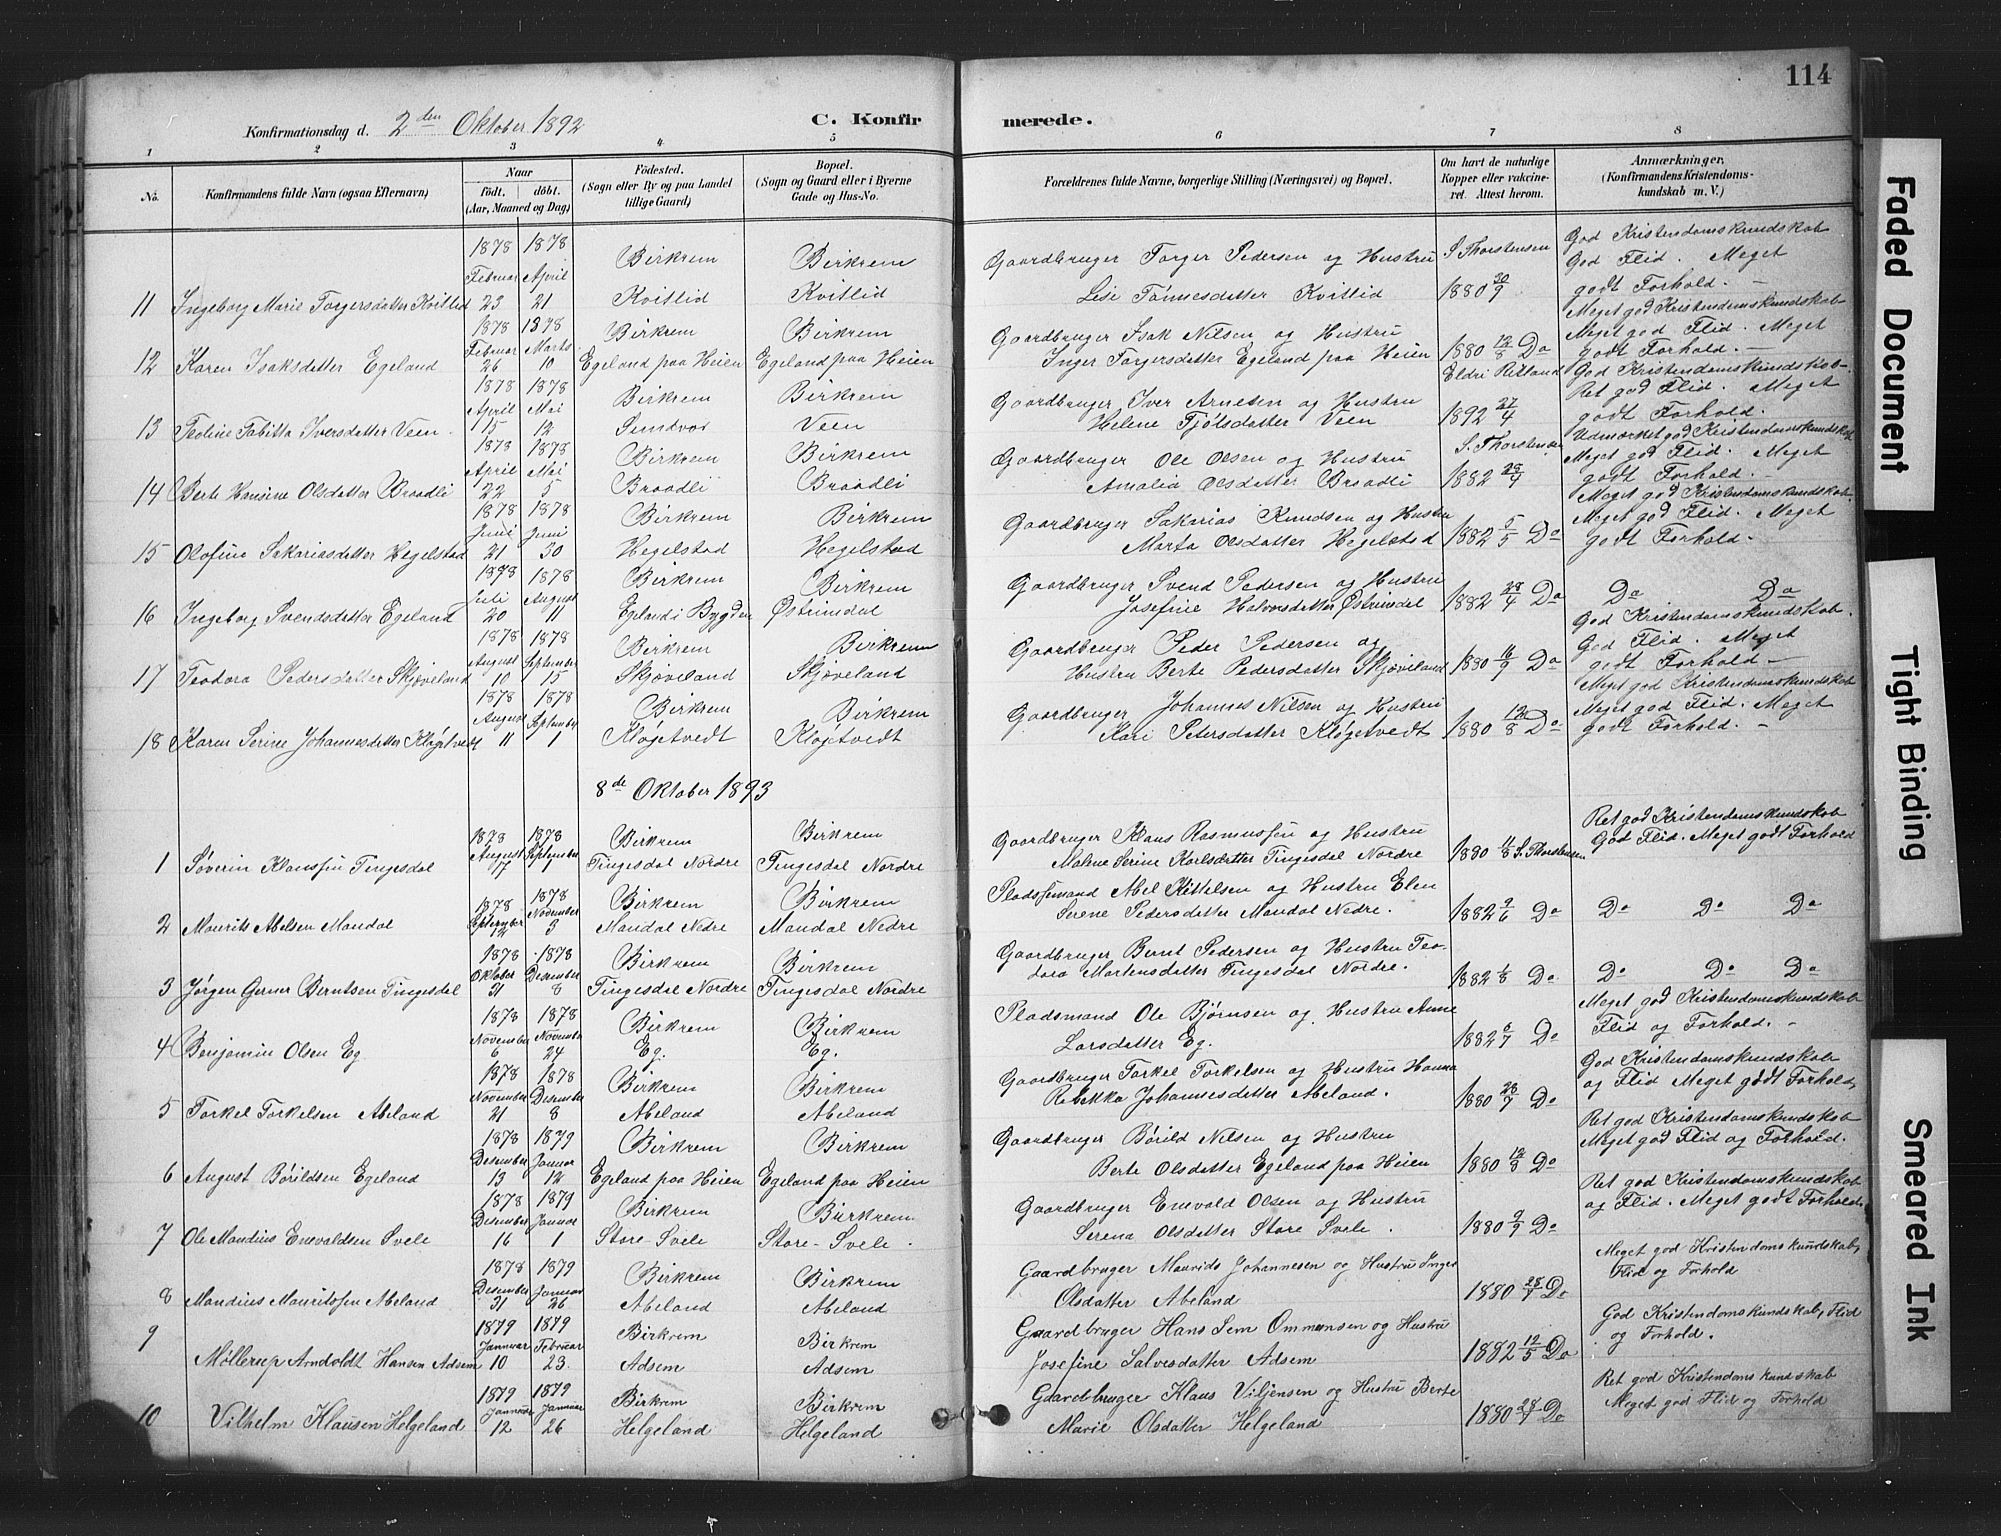 114
Konfirmationsdag d. 2den Oktober 1892
C. Konfirmerede.
1 2 3 4 5 6 7 8
No. Konfirmandens fulde Navn (ogsaa Efternavn)
Naar født. døbt. (Aar, Maaned og Dag)
Fødested. (Sogn eller By og paa Landet tillige Gaard)
Bopæl. (Sogn og Gaard eller i Byerne Gade og Hus-No.
Forældrenes fulde Navne, borgerlige Stilling (Næringsvei) og Bopæl.
Om havt de naturlige Kopper eller vaccineret. Attest herom.
Anmærkninger. (Konfirmandens Kristendomskundskab m. V.)
11 Ingeborg Marie Torgersdatter Kvitlid 1878 Februar 23 1878 April 21 Birkrem Kvitlid Birkrem Kvitlid Gaardbruger Torger Pedersen og Hustru Lise Tønnesdatter Kvitlid S. Thorstensen 1880 30/9 God Kristendomskundskab God Flid. Meget godt Forhold. –
12 Karen Isaksdatter Egeland 1878 Februar 26 1878 Marts 10 Birkrem Egeland paa Heien Birkrem Egeland paa Heien Gaardbruger Isak Nilsen og Hustru Inger Torgersdatter Egeland paa Heien 1880 12/8 Do Meget god Kristendomskundskab Meget god Flid. Meget godt Forhold. –
13 Teoline Tabitta Iversdatter Veen. 1878 April 15 1878 Mai 12 Birkrem Sundvor Birkrem Veen Gaardbruger Iver Arnesen og Hustru Helene Fjølsdatter Veen Eldri Retland 1892 27/4 God Kristendomskundskab. Ret god Flid. Meget godt Forhold.
14 Berte Hansine Olsdatter Braadli 1878 April 22 1878 Mai 5 Birkrem Braadli Birkrem Braadli Gaardbruger Ole Olsen og Hustru Amalia Olsdatter Braadli S. Thorstensen 1882 28/4 Udmærket god Kristendomskundskab Meget god Flid. Meget godt Forhold. –
15 Olofine Sakariasdatter Hegelstad 1878 Juni 21 1878 Juni 30 Birkrem Hegelstad Birkrem Hegelstad Gaardbruger Sakarias Knudsen og Hustru Marta Olsdatter Hegelstad 1882 5/5 Do Meget god Kristendomskundskab. Meget god Flid. Meget godt Forhold. –
16 Ingeborg Svendsdatter Egeland 1878 Juli 20 1878 August 11 Birkrem Egeland i Bygden Birkrem Østrimdal Gaardbruger Svend Pedersen og Hustru Josefine Halvorsdatter Østrimdal 1882 28/4 Do Do Do
17 Teodora Pedersdatter Skjæveland 1878 August 10 1878 September 15 Birkrem Skjæveland Birkrem Skjæveland Gaardbruger Peder Pedersen og Hustru Berte Pedersdatter Skjæveland 1880 16/9 Do God Kristendomskundskab. God Flid. Meget godt Forhold –
18 Karen Serine Johannesdatter Kløgetvedt 1878 August 11 1878 September 1 Birkrem Kløgetvedt Birkrem Kløgetvedt Gaardbruger Johannes Nilsen og Hustru Kari Petersdatter Kløgetvedt 1880 12/8 Do Meget god Kristendomskundskab Meget god Flid. Meget godt Forhold. –
8de Oktober 1893
1 Søverin Klausen Tingesdal 1878 August 17 1878 September Birkrem Tingesdal Nordre Birkrem Tingesdal Nordre Gaardbruger Klaus Rasmussen og Hustru Malene Serine Karlsdatter Tingesdal Nordre 1880 11/8 S. Thorstensen Ret god Kristendomskundskab God Flid. Meget godt Forhold
2 Maurits Abelsen Mandal 1878 September 1878 November 3 Birkrem Mandal Nedre Birkrem Mandal Nedre Pladsmand Abel Kittelsen og Hustru Elen Serene Pedersdatter Mandal Nedre. 1882 9/6 Do Do Do Do
3 Jørgen Gerner Berntsen Tingesdal 1878 Oktober 21 1878 Desember 8 Birkrem Tingesdal Nordre Birkrem Tingesdal Nordre Gaardbruger Bernt Pedersen og Hustru Teodora Martensdatter Tingesdal Nordre. 1882 1/8 Do Do Do Do
4 Benjamin Olsen Eg 1878 November 6 1878 November 24 Birkrem Eg. Birkrem Eg. Pladsmand Ole Bjørnsen og Hustru Anne Larsdatter Eg. 1882 6/7 Do Meget god Kristendomskundskab Flid og Forhold. –
5 Torkel Torkelsen Abeland 1878 November 21 1878 Desember 8 Birkrem Abeland Birkrem Abeland Gaardbruger Torkel Torkelsen og Hustru Hanna Rebekka Johannesdatter Abeland. 1880 28/7 Do God Kristendomskundskab og Flid Meget godt Forhold,
6 August Børildsen Egeland 1878 Desember 13 1879 Januar 12 Birkrem Egeland paa Heien Birkrem Egeland paa Heien Gaardbruger Børild Nilsen og Hustru Berte Olsdatter Egeland paa Heien 1880 12/8 Do Ret god Kristendomskundskab Meget god Flid og Forhold.
7 Ole Mandius Enevaldsen Svele 1878 Desember 16 1879 Januar 1 Birkrem Store-Svele Birkrem Store-Svele. Gaardbruger Enevald Olsen og Hustru Serena Olsdatter Store Svele. 1880 9/9 Do Ret god Kristendomskundskab og Flid. Meget godt Forhold.
8 Mandius Mauritssen Abeland 1878 Desember 31 1879 Januar 26 Birkrem Abeland Birkrem Abeland Gaardbruger Maurids Johannesen og Hustru Inger Olsdatter Abeland 1880 28/7 Do Meget god Kristendomskundskab, Flid og Forhold
9 Møllerup Arndoldt Hansen Adsem 1879 Januar 10 1879 Februar 23 Birkrem Adsem Birkrem Adsem Gaardbruger Hans Sem Ommunsen og Hustru Josefine Salvesdatter Adsem 1882 12/5 Do God Kristendomskundskab, Flid og Forhold.
10 Vilhelm Klausen Helgeland 1879 Januar 12 1879 Januar 26 Birkrem Helgeland Birkrem Helgeland Gaardbruger Klaus Viljensen og Hustru Berte Marie Olsdatter Helgeland 1880 28/7 Do Ret god Kristendomskundskab Meget god Flid og Forhold
Faded Document
Tight Binding
Smeared Ink